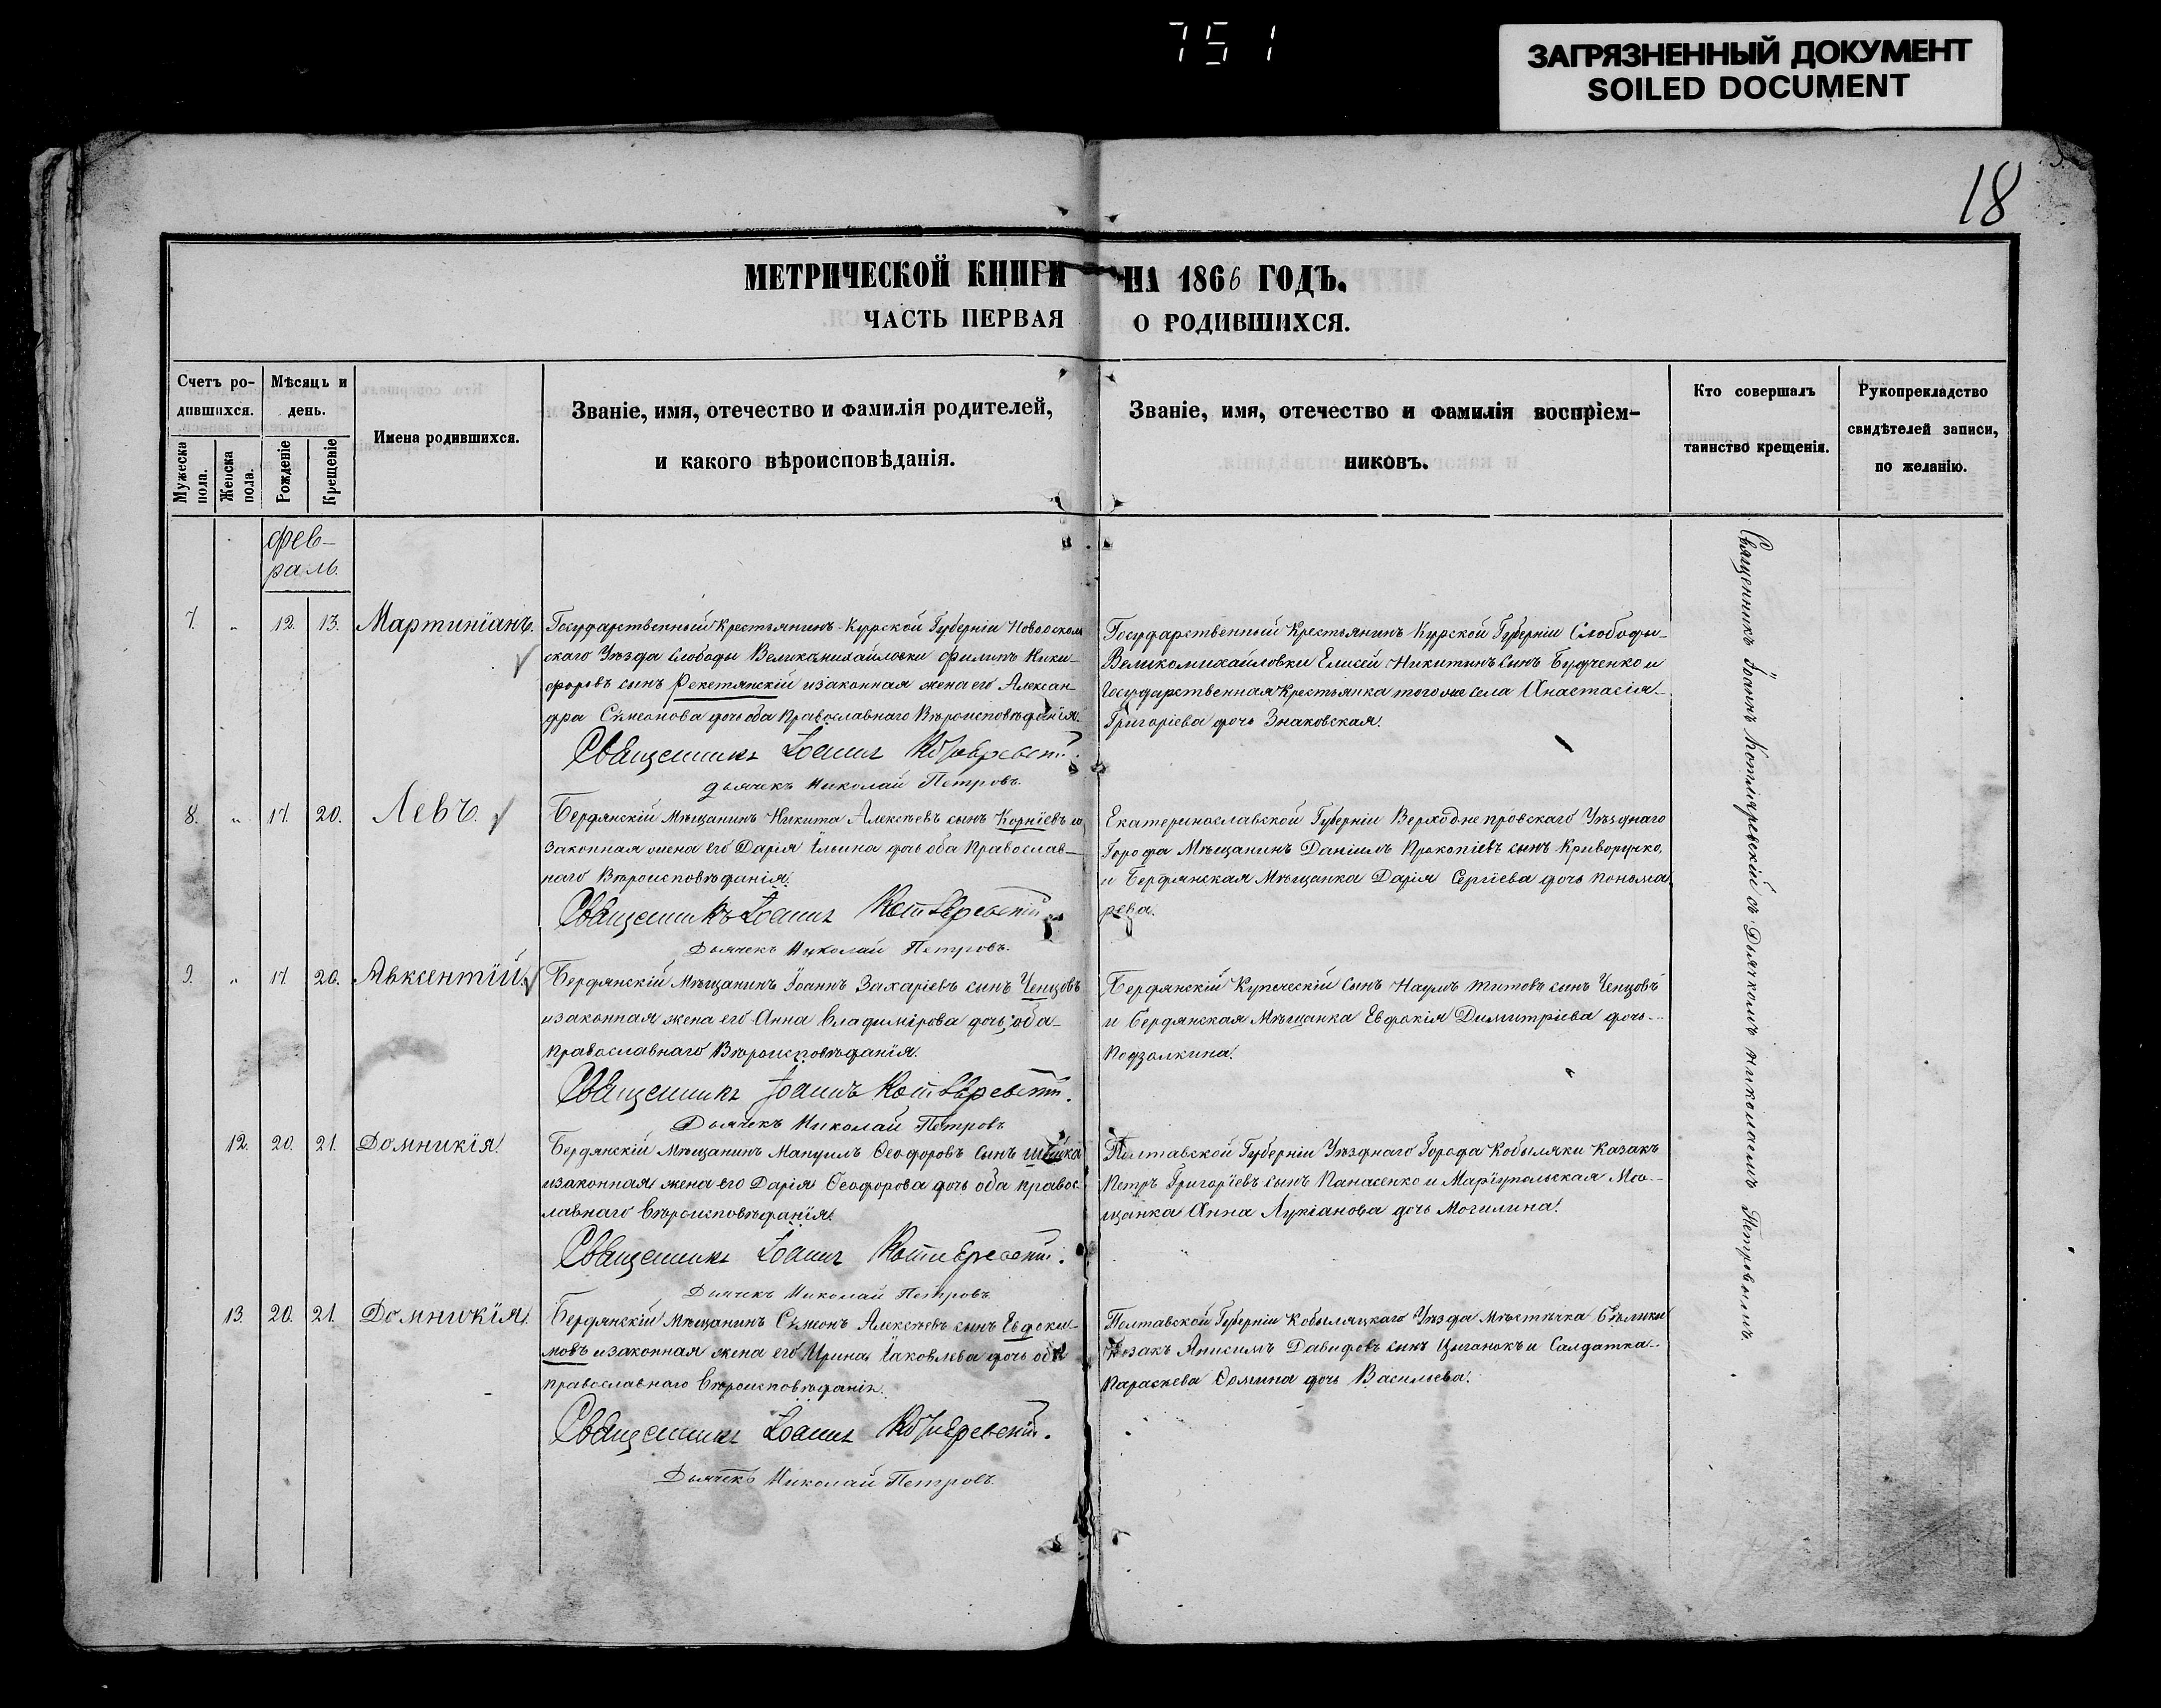 751
ЗАГРЯЗНЕННЫЙ ДОКУМЕНТ
SOILED DOCUMENT
18
МЕТРИЧЕСКОЙ КНИГИ НА 1866 ГОДЪ.
ЧАСТЬ ПЕРВАЯ О РОДИВШИХСЯ.
Счетъ ро-
дившихся.
Мужеска
пола.
Женска
пола.
Мѣсяць и
день.
Рожденіе
Крещеніе
Имена родившихся.
Званіе, имя, отечество и фамилія родителей,
и какого вѣроисповѣданія.
Званіе, имя, отечество и фамилія воспріем-
никовъ.
Кто совершалъ
таинство крещенія.
Рукоприкладство
свидѣтелей записи,
по желанію.
Фев-
раль.
7. " 12. 13. Мартиніанъ.
Государственный Крестьянинъ Курской Губерніи Новооскол
скаго Уѣзда Слободы Великомихайловки Филипъ Ники-
форовъ сынъ Рекетянскій и законная жена его Алексан-
дра Сѵмеонова дочь оба Православнаго Вѣроисповѣданія.
Священникъ Іоаннъ Котляревскій.
Дьячекъ Николай Петровъ.
Государственный Крестьянинъ Курской Губерніи Слободы
Великомихайловки Елисей Никитинъ сынъ Будченко и
Государственная Крестьянка того же села Анастасія
Григоріева дочь Знаковская.
8. " 17. 20. Левъ.
Бердянскій Мѣщанинъ Никита Алексѣевъ сынъ Корніевъ и
Законная жена его Дарія Ильина дочь оба Православ-
наго Вѣроисповѣданія.
Священникъ Іоаннъ Котляревскій
Дьячекъ Николай Петровъ.
Екатеринославской Губерніи Верходнепровскаго Уѣзднаго
Города Мѣщанинъ Даніилъ Прокопіевъ сынъ Криворучко,
и Бердянская Мѣщанка Дарія Сергіева дочь Понома
рева.
9. " 17. 20. Авксентій.
Бердянскій Мѣщанинъ Іоаннъ Захаріевъ сынъ Ченцовъ
и законная жена его Анна Владимірова дочь, оба
Православнаго Вѣроисповѣданія.
Священникъ Іоаннъ Котляревскій.
Дьячекъ Николай Петровъ
Бердянскій Купеческій Сынъ Наумъ Титовъ сынъ Ченцовъ
и Бердянская Мѣщанка Евдокія Димитріева дочь
Подзолкина.
12. 20. 21. Домникія.
Бердянскій Мѣщанинъ Мануилъ Ѳеодоровъ сынъ
и законная жена его Дарія Ѳеодорова дочь оба Правос
лавнаго Вѣроисповѣданія.
Священникъ Іоаннъ Котляревскій.
Дьячекъ Николай Петровъ
Полтавской Губерніи Уѣзднаго Города Кобыляки Казакъ
Петръ Григоріевъ сынъ Панасенко и Маріупольская Мѣ-
щанка Анна Лукіанова дочь Могилина.
13. 20. 21. Домникія.
Бердянскій Мѣщанинъ Сѵмеонъ Алексѣевъ сынъ Евдоки-
мовъ и законная жена его Ирина Іаковлева дочь оба
Православнаго Вѣроисповѣданія.
Священникъ Іоаннъ Котляревскій.
Дьячекъ Николай Петровъ.
Полтавской Губерніи Кобыляцкаго Уѣзда Мѣстѣчка Бѣлики
Козакъ Анисимъ Давидовъ сынъ Цыганокъ и Салдатка
Параскева Ѳомина дочь Васильева.
Священникъ Іоаннъ Котляревскій съ Дьячкомъ Николаемъ Петровымъ